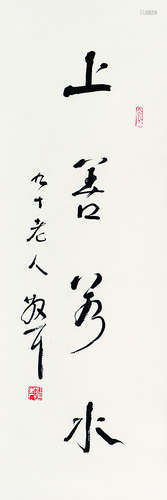 上善若水
九十老人敬行